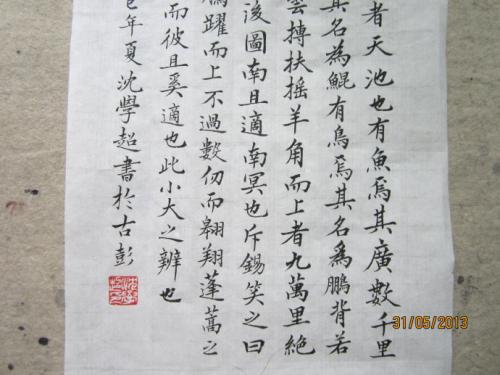 者天池也有魚焉其廣數千里
其名為鯤有鳥焉其名為鵬背若
雲摶扶摇羊角而上者九萬里絕
後圖南且適南冥也斥錫笑之曰
騰躍而上不過數仞而翱翔蓬蒿之
而彼且奚適也此小大之辨也
巳年夏沈學超書於古彭
31/05/2013